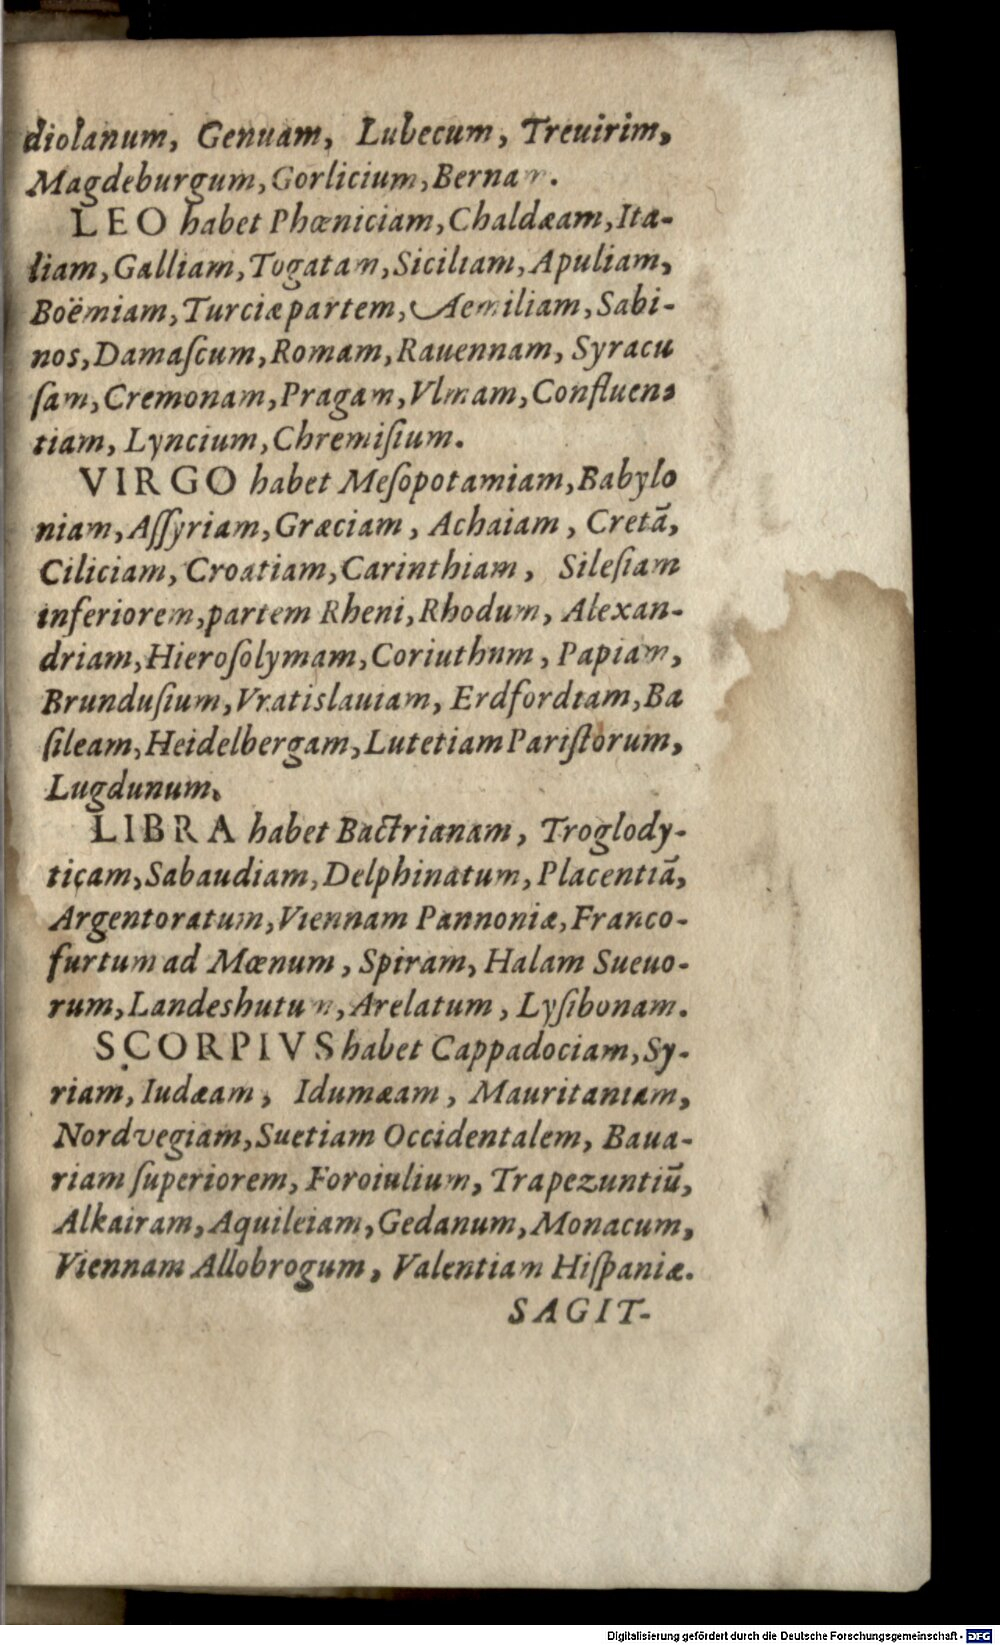 diolanum, Genuam, Lubecum, Treuirim,
Magdeburgum, Gorlicium, Bernam.
LEO habet Phœniciam, Chaldæam, Ita-
liam, Galliam, Togatam, Siciliam, Apuliam,
Boëmiam, Turciæ partem, Aemiliam, Sabi-
nos, Damaſcum, Romam, Rauennam, Syracu
ſam, Cremonam, Pragam, Vlmam, Confluen-
tiam, Lyncium, Chremiſium.
VIRGO habet Meſopotamiam, Babylo
niam, Aſſyriam, Græciam, Achaiam, Cretã,
Ciliciam, Croatiam, Carinthiam, Sileſiam
inferiorem, partem Rheni, Rhodum, Alexan-
driam, Hieroſolymam, Coriuthum, Papiam,
Brunduſium, Vratislauiam, Erdfordiam, Ba
ſileam, Heidelbergam, Lutetiam Pariſiorum,
Lugdunum.
LIBRA habet Bactrianam, Troglody-
ticam, Sabaudiam, Delphinatum, Placentiã,
Argentoratum, Viennam Pannoniæ, Franco-
furtum ad Mœnum, Spiram, Halam Sueuo-
rum, Landeshutum, Arelatum, Lyſibonam.
SCORPIVS habet Cappadociam, Sy-
riam, Iudæam, Idumæam, Mauritaniam,
Nordvegiam, Suetiam Occidentalem, Baua-
riam ſuperiorem, Foroiulium, Trapezuntiũ,
Alkairam, Aquileiam, Gedanum, Monacum,
Viennam Allobrogum, Valentiam Hiſpaniæ.
SAGIT-
Digitalisierung gefördert durch die Deutsche Forschungsgemeinschaft - DFG